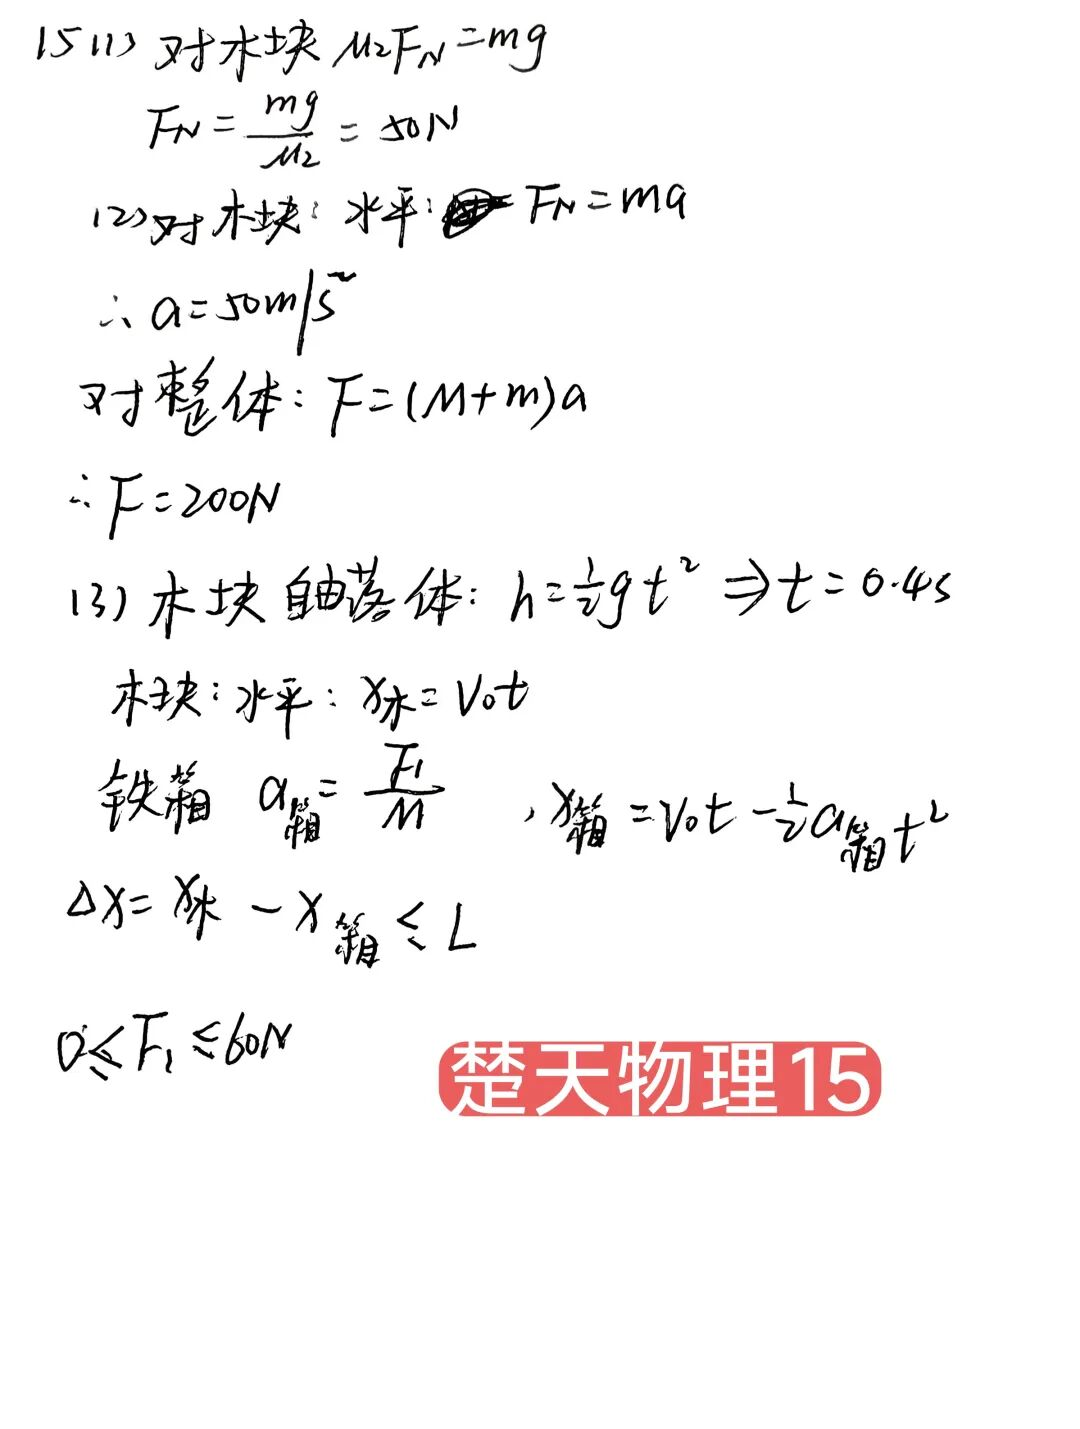 15(1) 对木块 μ₂F_N = mg
F_N = mg/μ₂ = 50N
(2) 对木块: 水平: F_N = ma
∴ a = 50m/s²
对整体: F = (M+m)a
∴ F = 200N
(3) 木块自由落体: h = ½gt² ⇒ t = 0.4s
木块: 水平: x木 = V₀t
铁箱 a箱 = F₁/M , x箱 = V₀t - ½a箱t²
Δx = x木 - x箱 ≤ L
0 ≤ F₁ ≤ 60N
楚天物理15